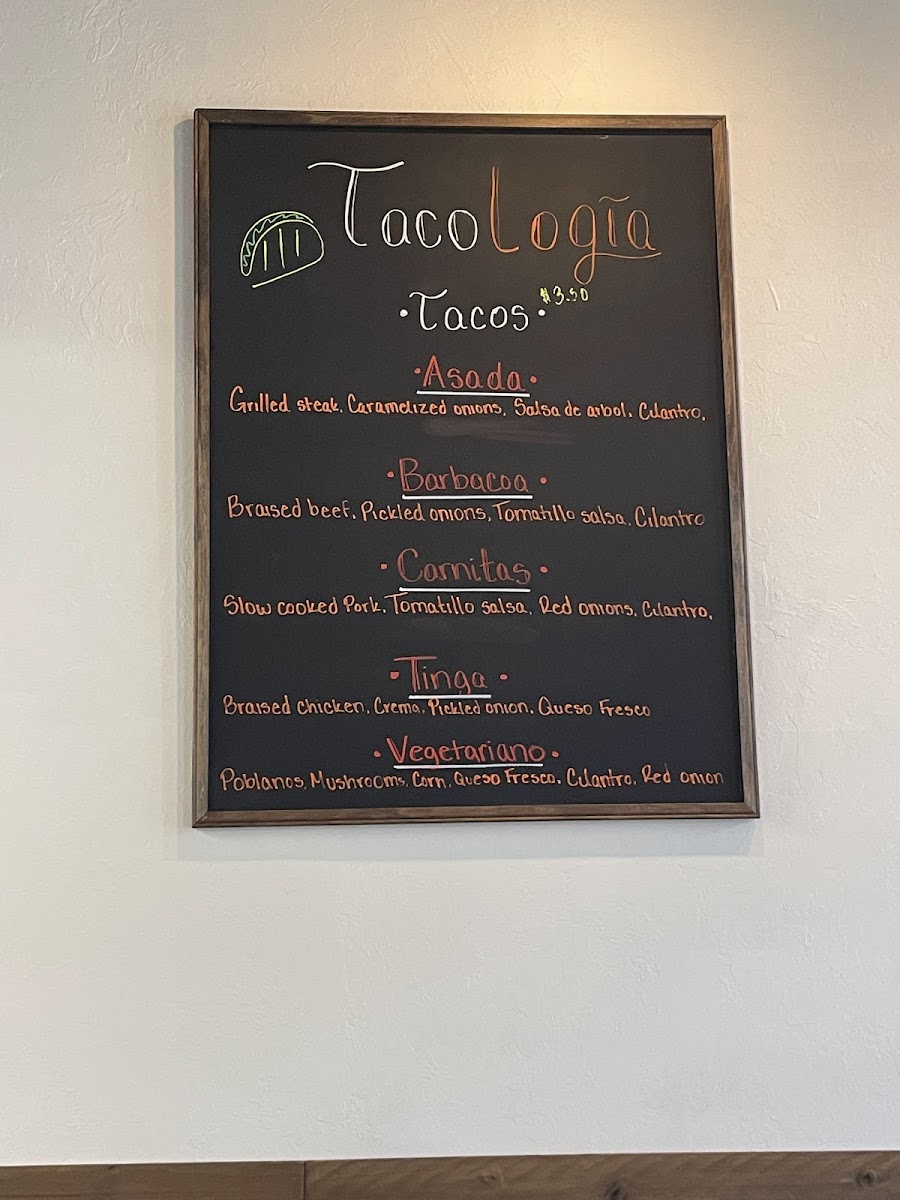 TacoLogía
$3.50
·Tacos·
·Asada·
Grilled steak, Caramelized onions, Salsa de arbol, Cilantro,
·Barbacoa·
Braised beef, Pickled onions, Tomatillo salsa, Cilantro
·Carnitas·
Slow cooked Pork, Tomatillo salsa, Red onions, Cilantro,
·Tinga·
Braised chicken, Crema, Pickled onion, Queso Fresco
·Vegetariano·
Poblanos, Mushrooms, Corn, Queso Fresco, Cilantro, Red onion